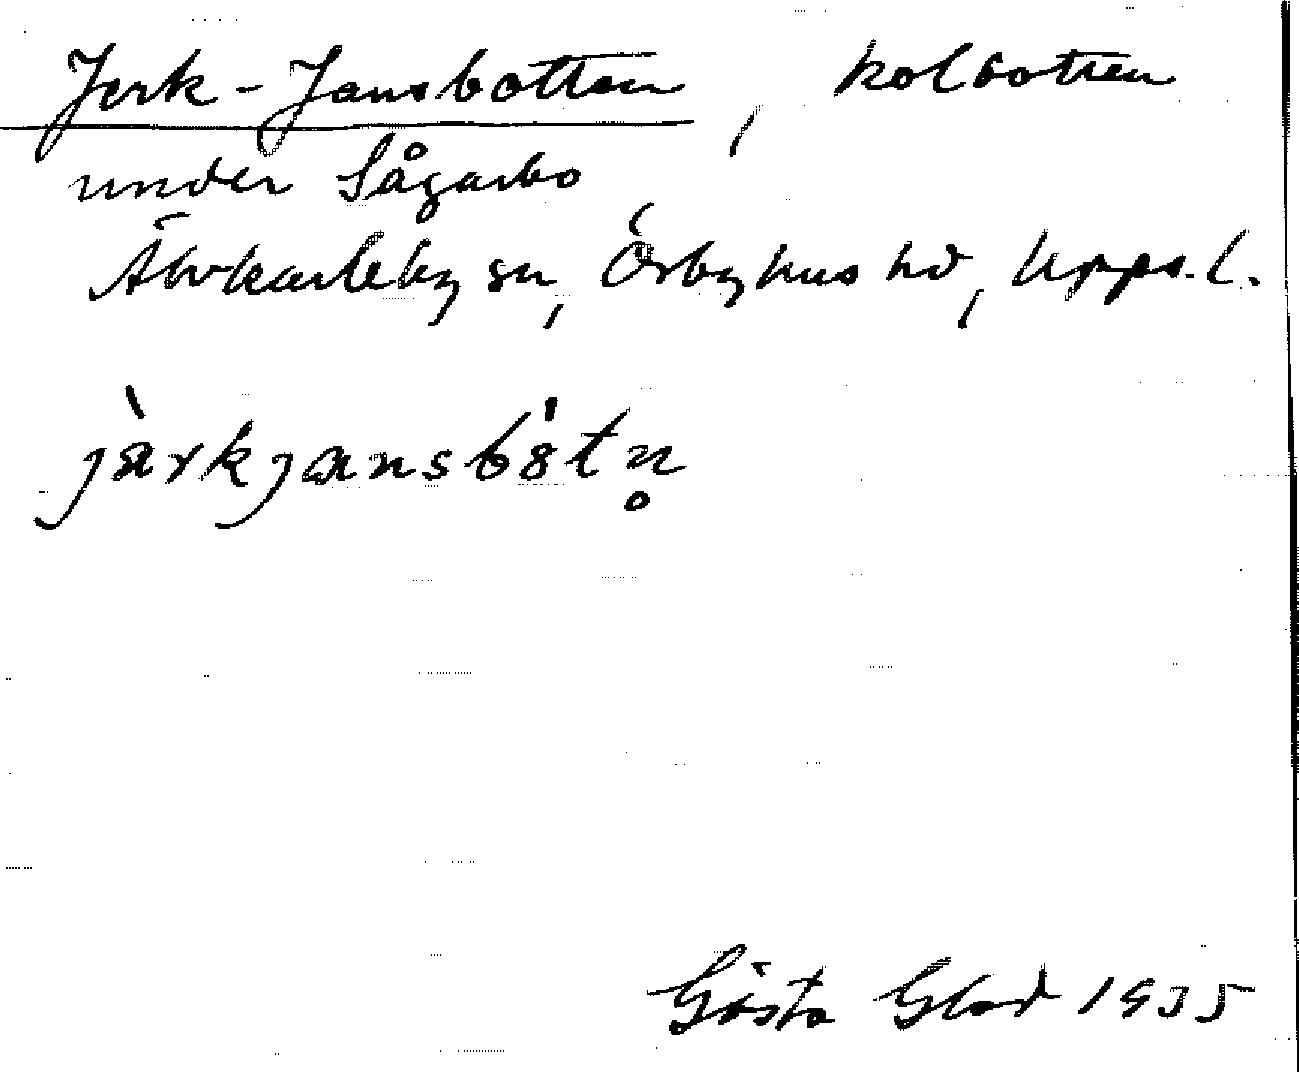 Jerk-Jansbotten, kolbotten
under Sågarbo
Älvkarleby sn, Örbyhus hd, Upps.l.
jàrkjansbȯtn̥
Gösta Glad 1935